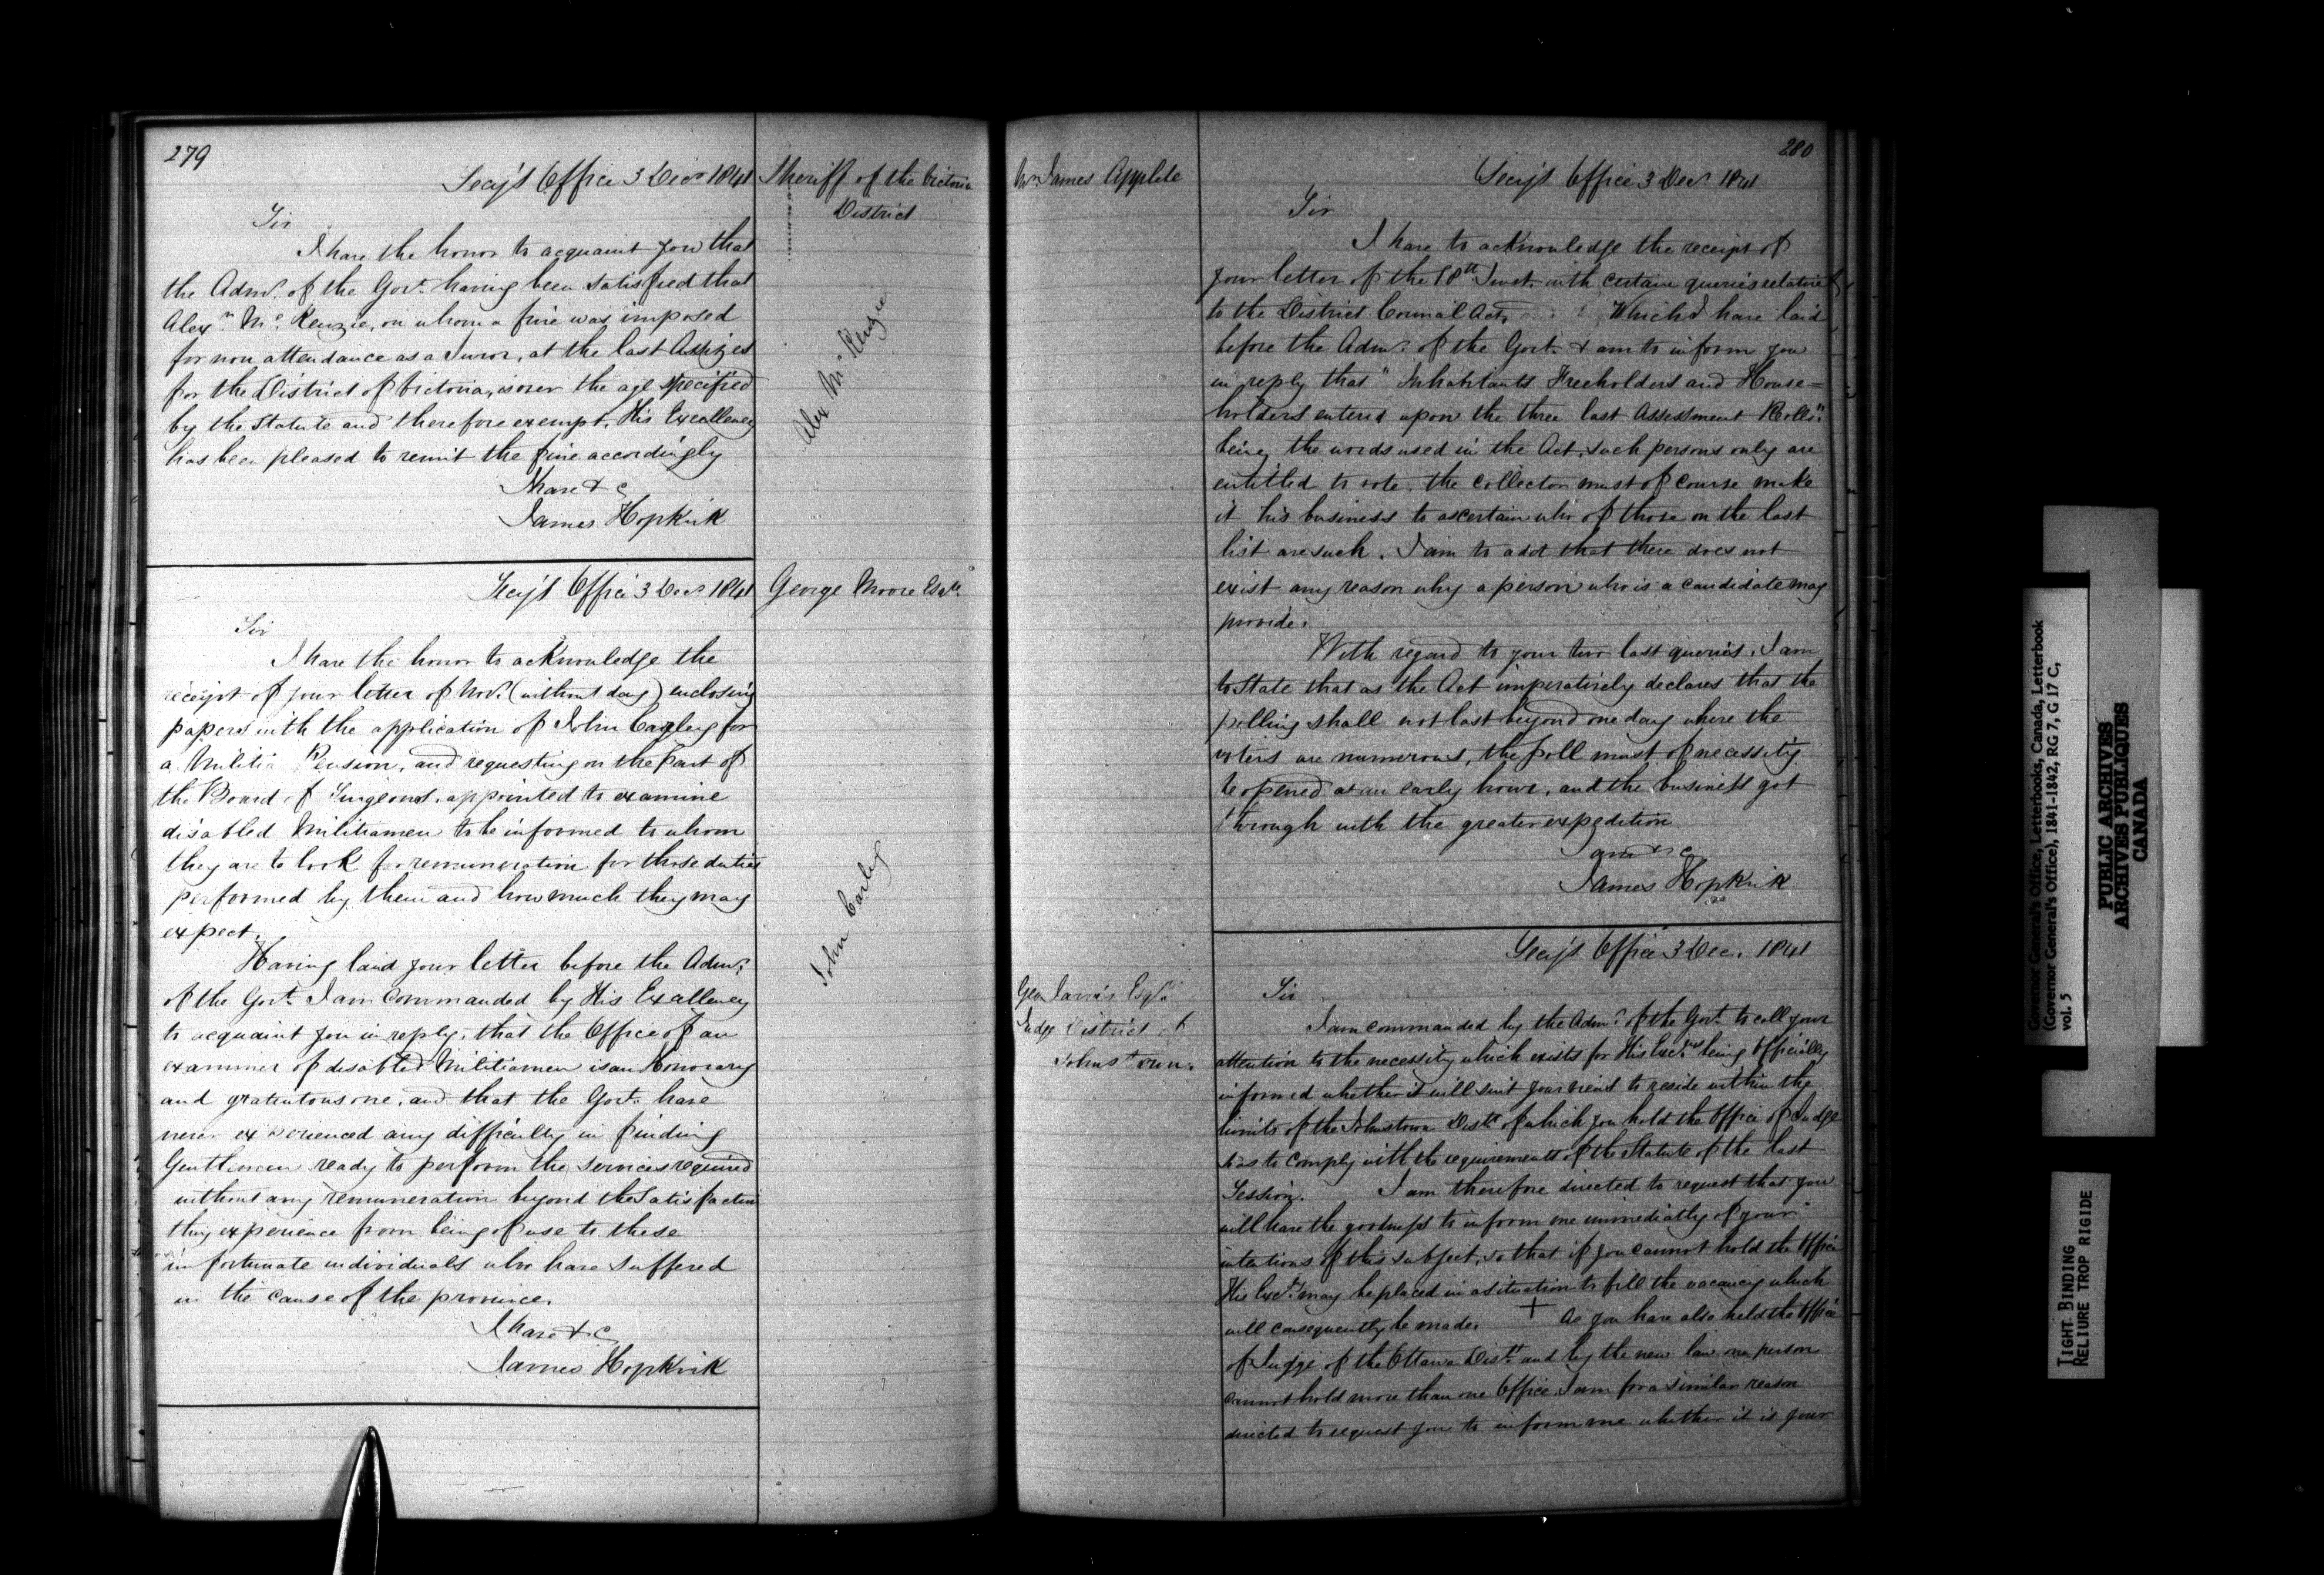 279
Secy's Office 3 Decr 1841
Sheriff of the Victoria
District
Sir
I have the honor to acquaint you that
the Admr. of the Govt. having been satisfied that
Alexr. Mc.Kenzie, on whom a fine was imposed
for non attendance as a Juror, at the last Assizes
for the District of Victoria, is over the age specified
by the Statute and therefore exempt, His Excellency
has been pleased to remit the fine accordingly
I have &c
James Hopkirk
Alex McKenzie
Secy's Office 3 Decr. 1841
George Moore Esqre.
Sir
I have the honor to acknowledge the
receipt of your letter of Novr. (without day) enclosing
papers with the application of John Carley for
a Militia Pension, and requesting on the part of
the Board of Surgeons, appointed to examine
disabled Militiamen to be informed to whom
they are to look for remuneration for those duties
performed by them and how much they may
expect.
Having laid your letter before the Admr.
of the Govt. I am commanded by His Excellency
to acquaint you in reply, that the Office of an
examiner of disabled Militiamen is an Honorary
and gratuitous one, and that the Govt. have
never experienced any difficulty in finding
Gentlemen ready to perform the services required
without any remuneration beyond the Satisfaction
they experience from being of use to these
unfortunate individuals who have suffered
in the cause of the province.
I have &c
James Hopkirk
John Carley
280
Mr. James Applebe
Secy's Office 3 Decr. 1841
Sir
I have to acknowledge the receipt of
your letter of the 18th Inst. with certain queries relative
to the District Council Act, Which I have laid
before the Admr. of the Govt. & am to inform you
in reply that "Inhabitants Freeholders and House=
holders entered upon the three last Assessment Rolls"
being the words used in the Act, such persons only are
entitled to vote, the collector must of course make
it his business to ascertain who of those on the last
list are such. I am to add that there does not
exist any reason why a person who is a candidate may
provide.
With regard to your two last queries, I am
to State that as the Act imperatively declares that the
polling shall not last beyond one day where the
voters are numerous, the poll must of necessity
be opened at an early hour, and the business got
through with the greater expedition
I am &c
James Hopkirk
Secy's Office 3 Dec. 1841
Geo Jarvis Esqre
Judge District of
Johnstown.
Sir
I am commanded by the Admr. of the Govt. to call your
attention to the necessity which exists for His Excy's being Officially
informed whether it will suit your views to reside within the
limits of the Johnstown Distt. of which you hold the Office of Judge
so as to comply with the requirements of the Statute of the last
Session. I am therefore directed to request that you
will have the goodness to inform me immediately of your
intentions of this subject, so that if you cannot hold the Office
His Excy. may be placed in a situation to fill the vacancy which
will consequently be made. + As you have also held the Office
of Judge of the Ottawa Distt. and by the new law one person
cannot hold more than one Office, I am for a similar reason
directed to request you to inform me whether it is your
Governor General's Office, Letterbooks, Canada, Letterbook
(Governor General's Office), 1841-1842, RG 7, G 17 C,
vol. 5
PUBLIC ARCHIVES
ARCHIVES PUBLIQUES
CANADA
TIGHT BINDING
RELIURE TROP RIGIDE